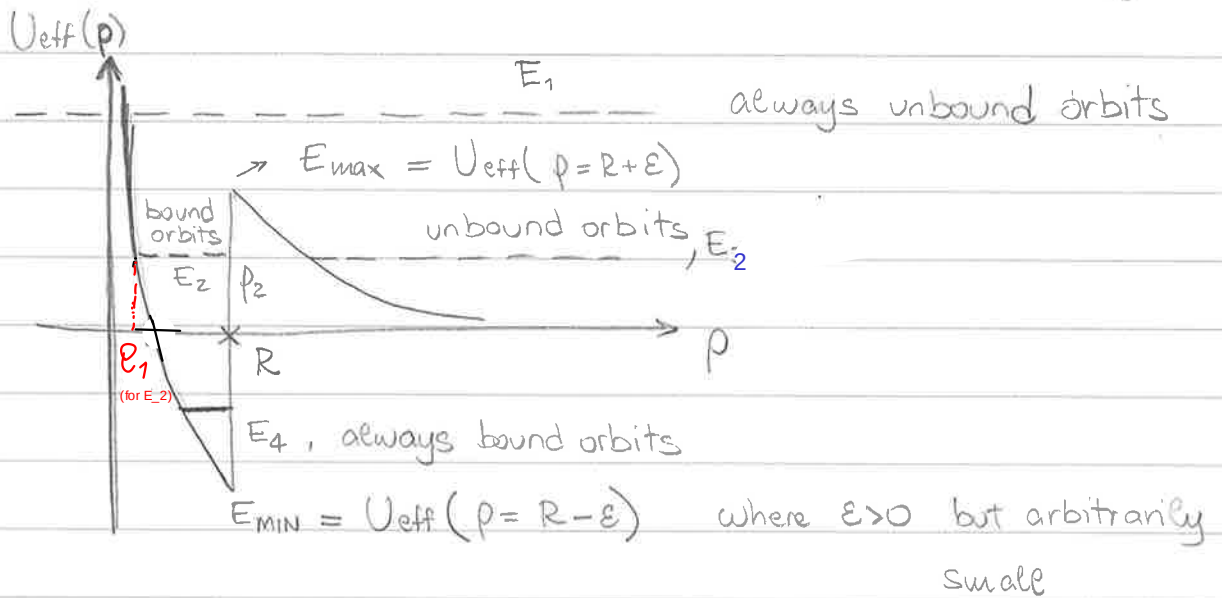 Ueff(ρ)
E₁
always unbound orbits
Emax = Ueff( ρ=R+ε)
bound
orbits
unbound orbits, E₂
E₂
ρ₂
ρ₁
(for E_2)
R
ρ
E₄, always bound orbits
EMIN = Ueff(ρ= R-ε) where ε>0 but arbitrarily
small